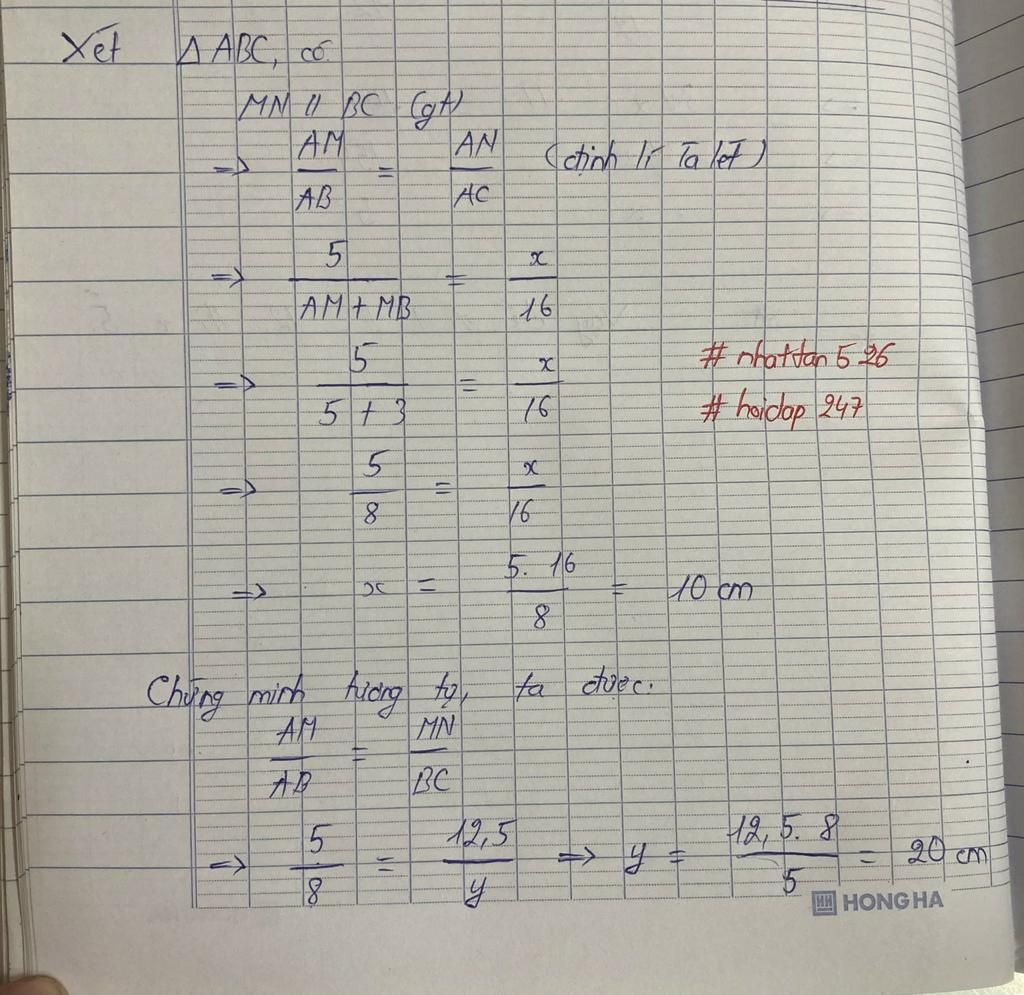 Xét △ ABC, có
MN // BC (gt)
=> AM/AB = AN/AC (định lí Ta lét)
=> 5/(AM + MB) = x/16
=> 5/(5 + 3) = x/16
# nhattan 526
=> 5/8 = x/16
# hoidap 247
=> x = (5. 16)/8 = 10 cm
Chứng minh tương tự, ta được.
AM/AB = MN/BC
=> 5/8 = 12,5/y => y = (12,5. 8)/5 = 20 cm
HONG HA